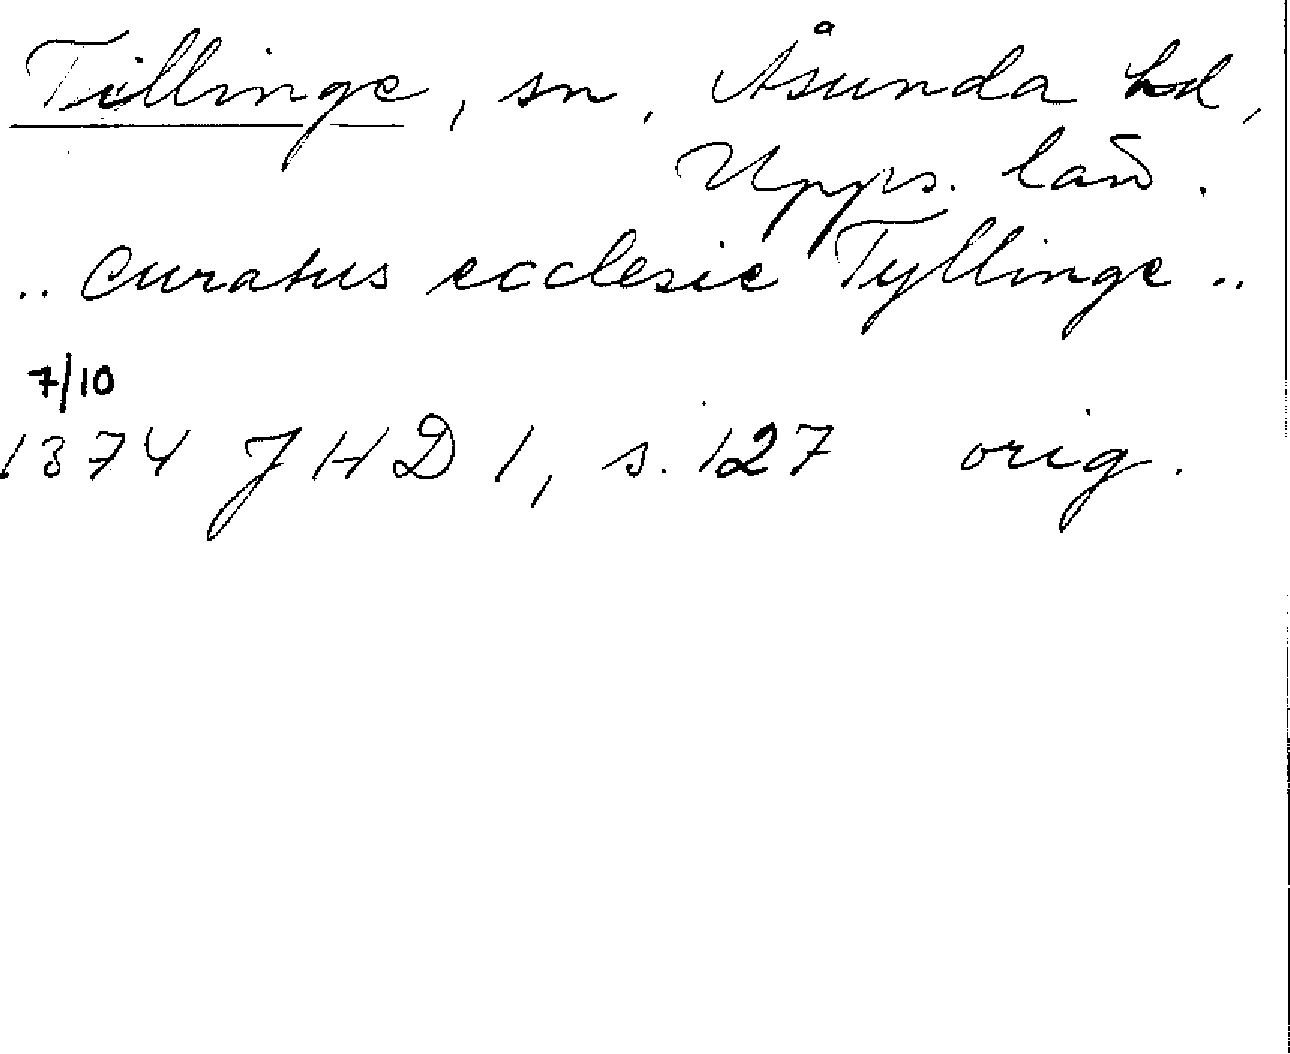 Tillinge, sn, Åsunda hd,
Upps. län.
.. curatus ecclesie Tyllinge ..
7/10
1374 JHD 1, s. 127 orig.